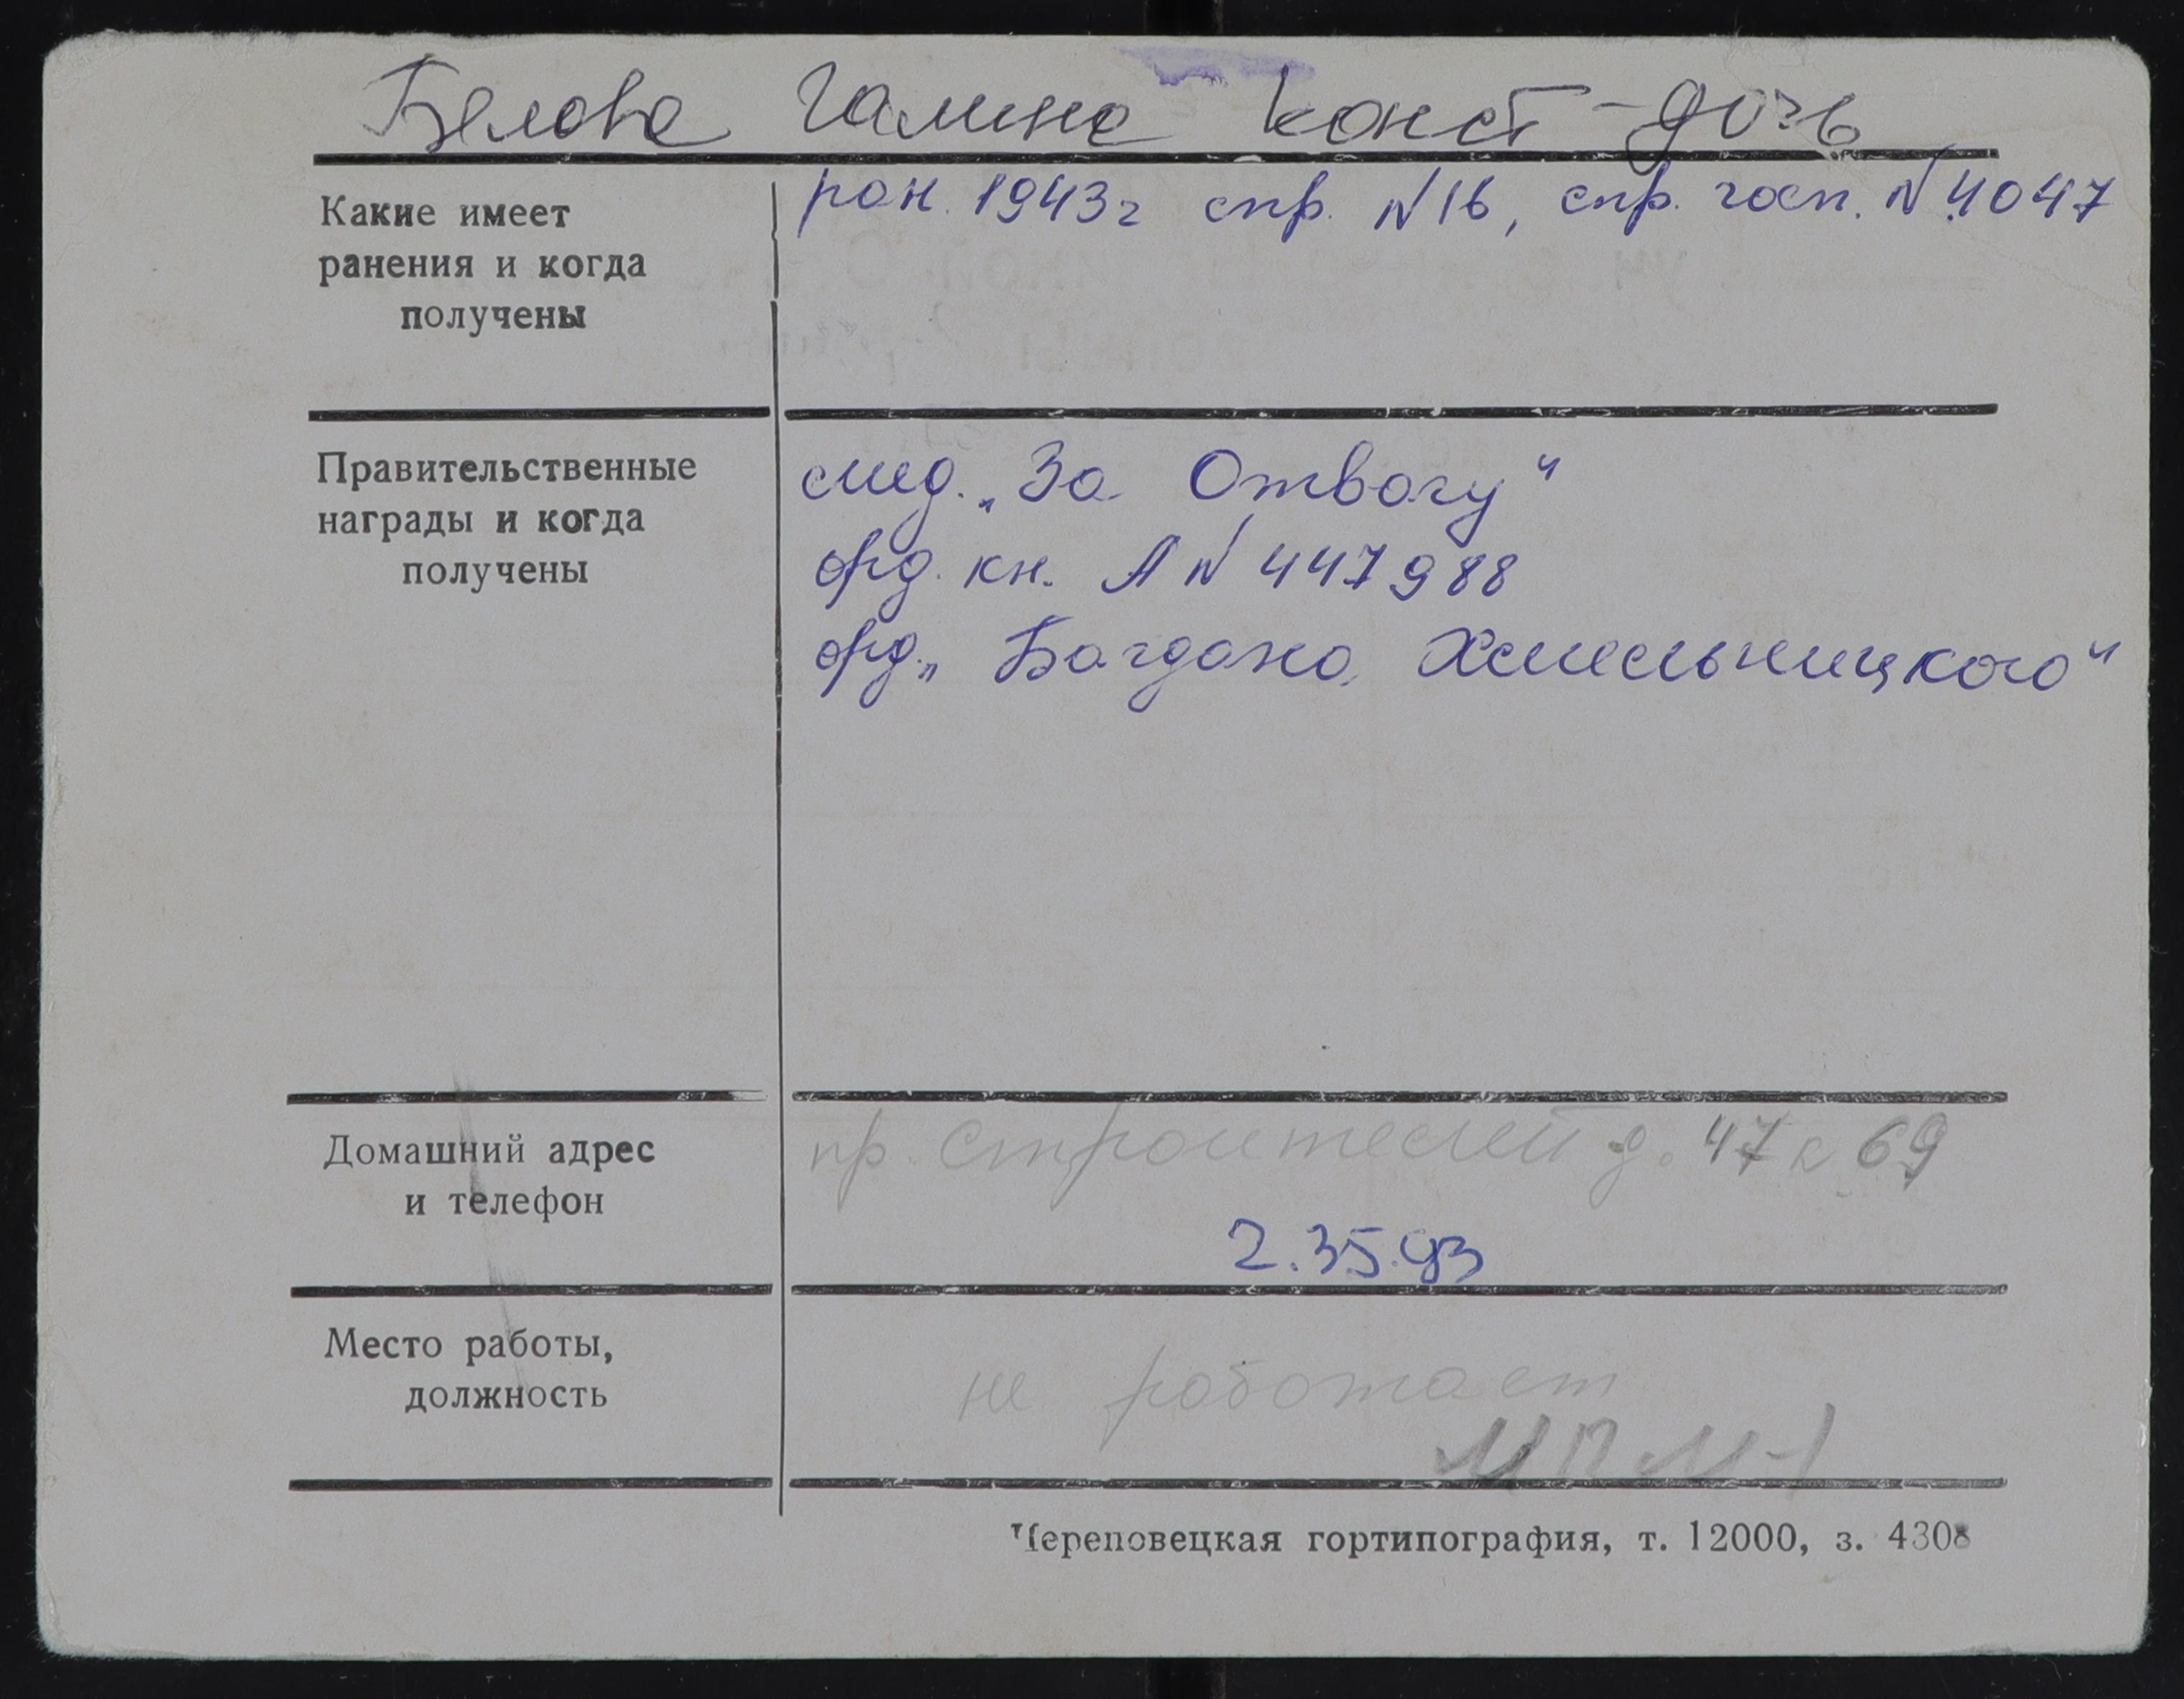 Белова Галина Конст - дочь
Какие имеет
ранения и когда
получены
ран. 1943г спр. N16, спр. госп. N 4047
Правительственные
награды и когда
получены
мед. „За Отвагу“
орд. кн. А N 447988
орд. „Богдана Хмельницкого“
Домашний адрес
и телефон
пр. Строителей д. 47 к 69
2.35.93
Место работы,
должность
не работает
МПМ-1
Череповецкая гортипография, т. 12000, з. 4308